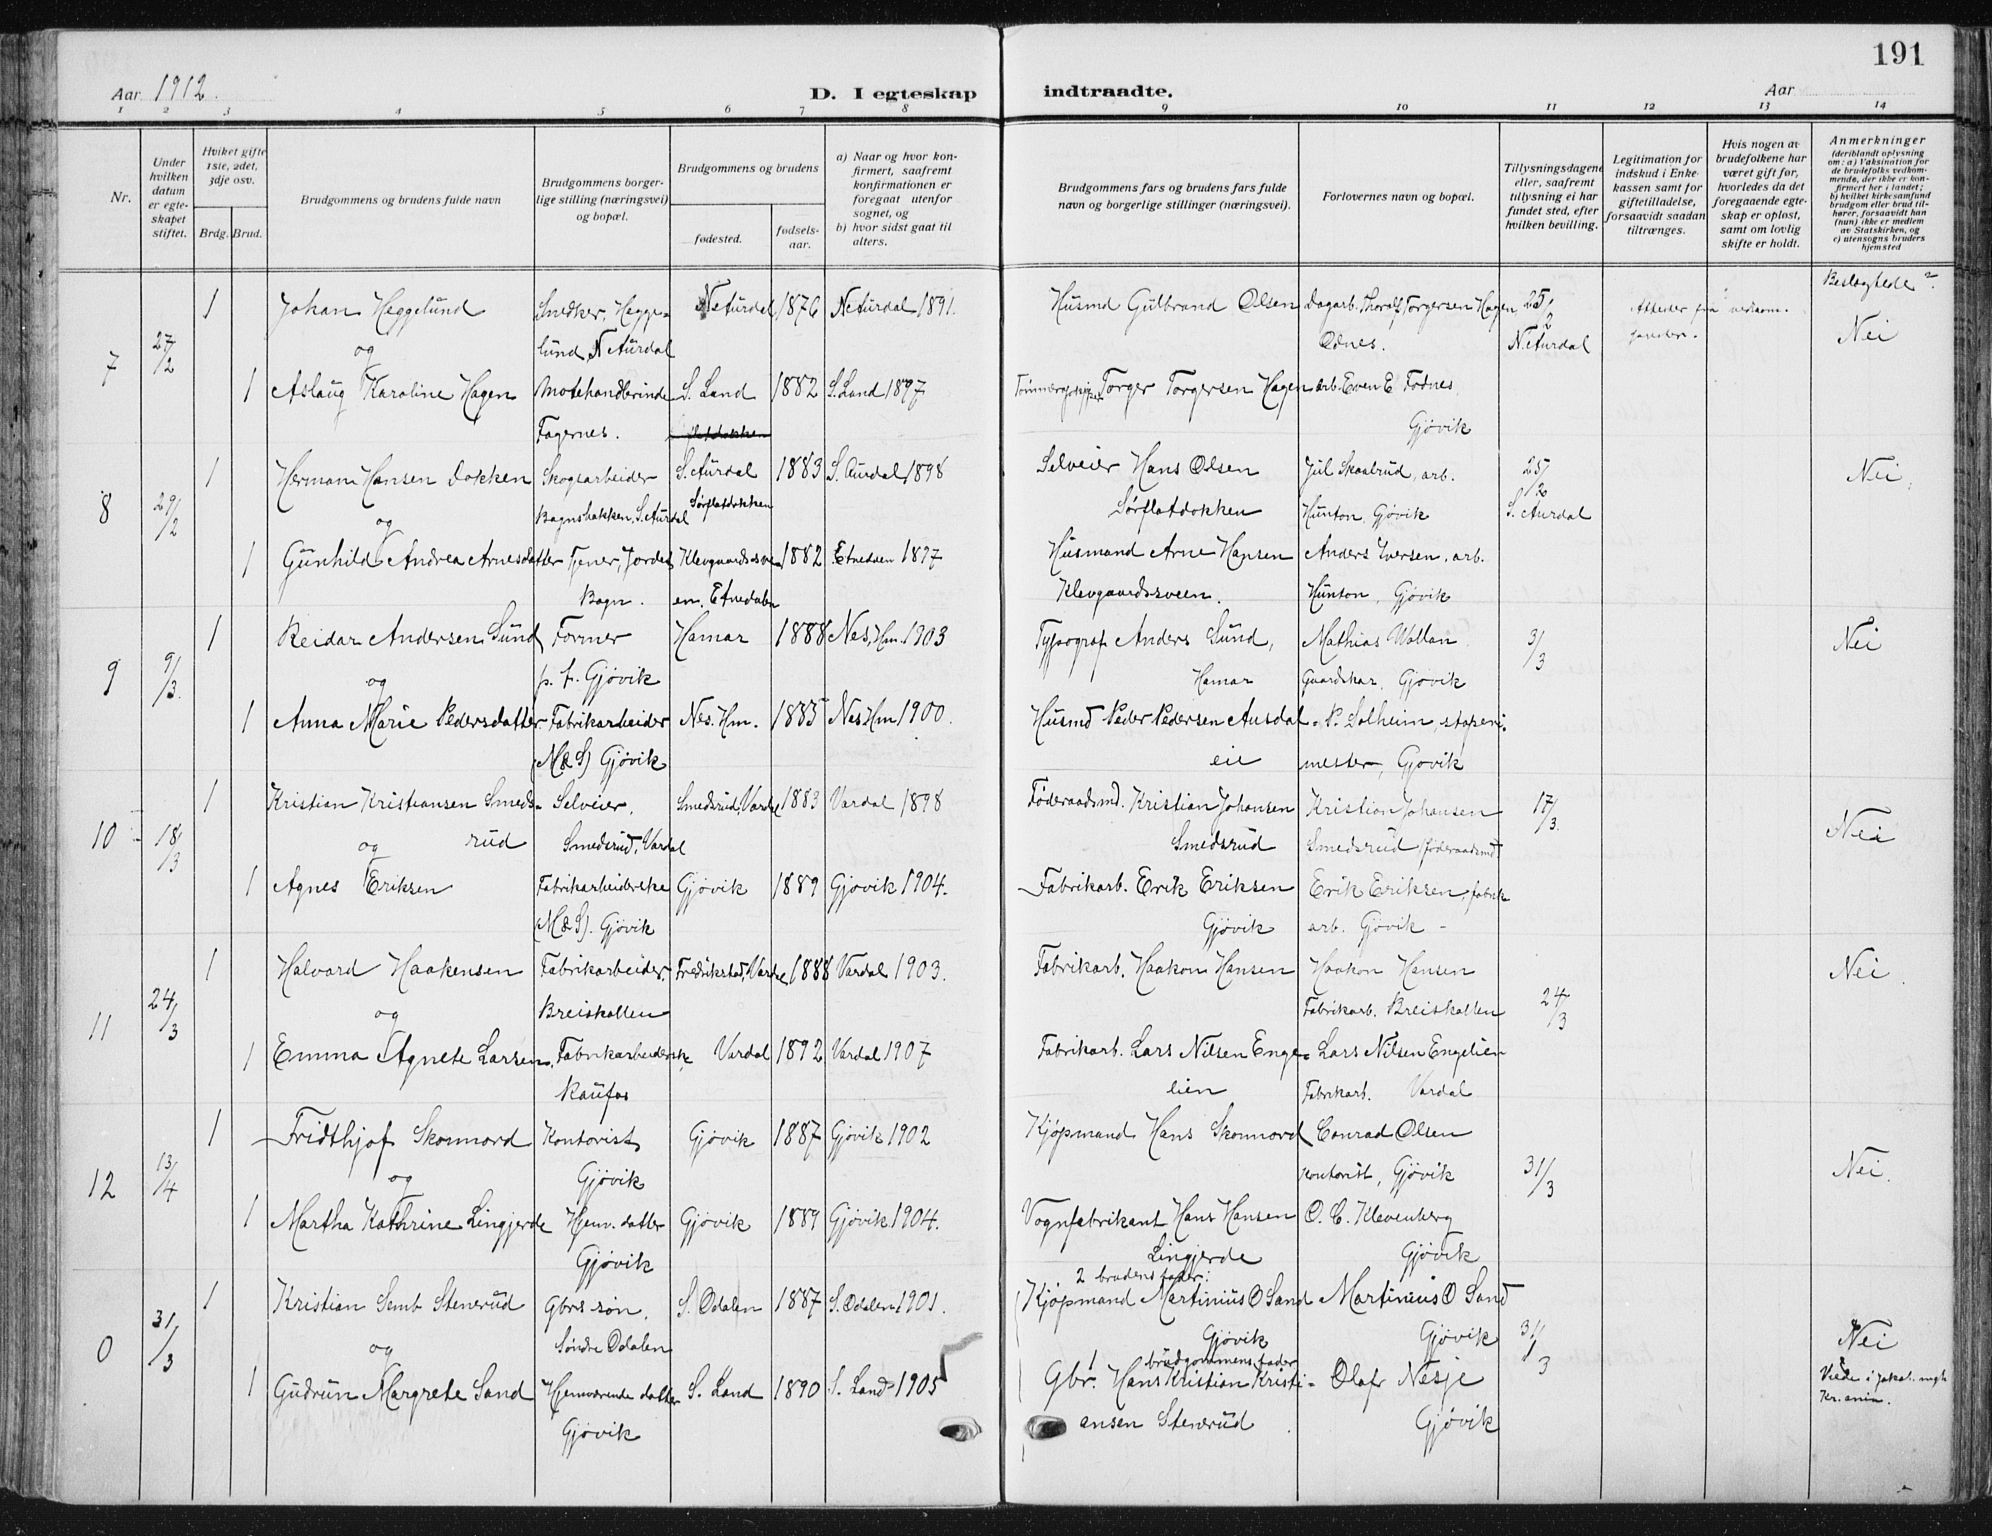 191
Aar 1912.
D. I egteskap indtraadte.
Aar
1 2 3 4 5 6 7 8 9 10 11 12 13 14
Nr.
Under hvilken datum er egteskapet stiftet.
Hvilket gifte 1ste, 2det, 3dje osv.
Brdg. Brud.
Brudgommens og brudens fulde navn
Brudgommens borgerlige stilling (næringsvei) og bopæl.
Brudgommens og brudens
fødested.
fødselsaar.
a) Naar og hvor konfirmert, saafremt konfirmationen er foregaat utenfor sognet, og
b) hvor sidst gaat til alters.
Brudgommens fars og brudens fars fulde navn og borgerlige stillinger (næringsvei).
Forlovernes navn og bopæl.
Tillysningsdagene eller, saafremt tillysning ei har fundet sted, efter hvilken bevilling.
Legitimation for indskud i Enkekassen samt for giftetilladelse, forsaavidt saadan tiltrænges.
Hvis nogen av brudefolkene har været gift før, hvorledes da det foregaaende egteskap er opløst, samt om lovlig skifte er holdt.
Anmerkninger (deriblandt oplysning om: a) Vaksination for de brudefolks vedkommende, der ikke er konfirmert her i landet; b) hvilket kirkesamfund brudgom eller brud tilhører, forsaavidt han (hun) ikke er medlem av Statskirken, og c) utensogns bruders hjemsted
Beslægtede?
1 Johan Heggelund Snedker, Hegge- N. Aurdal 1876 N. Aurdal 1891. Husmd Gulbrand Olsen Dagarb. Thoralf Torgersen Hagen 25/2
7 27/2 og lund, N. Aurdal Odnes. N. Aurdal Nei
1 Aslaug Karoline Hagen Motehandlerinde S. Land 1882 S. Land 1897 Torger Torgersen Hagen arb. Even E. Fodnes,
Fagernes. Gjøvik
1 Herman Hansen Dokken Skogsarbeider S. Aurdal 1883 S. Aurdal 1898 Selveier Hans Olsen Jul Skaalrud, arb. Nei
8 29/2 og Bagnsbakken, S. Aurdal Sørflatdokken Sørflatdokken Hunton, Gjøvik S. Aurdal
1 Gunhild Andrea Arnesdatter Tjener, Jordet Klevgaardssve- 1882 Etnedalen 1897 Husmand Arne Hansen Anders Iversen, arb.
Bagn. en, Etnedalen Klevgaardssveen. Hunton, Gjøvik
1 Reidar Andersen Sund Former Hamar 1888 Nes, Hm. 1903 Typograf Anders Sund, Mathias Wollan 3/3 Nei
9 9/3. og p. t. Gjøvik Hamar Gaardskar, Gjøvik
1 Anna Marie Pedersdatter Fabrikarbeider Nes. Hm. 1885 Nes, Hm 1900. Husmd Peder Pedersen Ausdal- P. Solheim, støperi-
(M&S) Gjøvik eie mester, Gjøvik
1 Kristian Kristiansen Smeds- Selveier, Smedsrud, Vardal 1883 Vardal 1898 Føderaadsmd. Kristian Johansen Kristian Johansen 17/3.
10 18/3 og rud Smedsrud, Vardal Smedsrud Smedsrud (føderaadsmd) Nei
1 Agnes Eriksen Fabrikarbeiderske Gjøvik 1889 Gjøvik 1904. Fabrikarb. Erik Eriksen Erik Eriksen, fabrik
(M&S). Gjøvik Gjøvik arb. Gjøvik -
1 Halvard Haakensen Fabrikarbeider, Fredrikstad, Vardal 1888 Vardal 1903. Fabrikarb. Haakon Hansen Haakon Hansen Nei
11 24/3 og Breiskallen Fabrikarb. Breiskallen 24/3
1 Emma Agnete Larsen, Fabrikarbeiderske Vardal 1892 Vardal 1907 Fabrikarb. Lars Nilsen Enge- Lars Nilsen Engelien
Raufos lien Fabrikarb. Vardal
1 Fridthjof Skonnord Kontorist Gjøvik 1887 Gjøvik 1902 Kjøpmand Hans Skonnord Conrad Olsen
12 13/4 og Gjøvik kontorist, Gjøvik 31/3 Nei.
1 Martha Kathrine Lingjerde Hjemv. datter Gjøvik 1889 Gjøvik 1904. Vognfabrikant Hans Hansen O. C. Klevenberg
Gjøvik Lingjerde Gjøvik
2 brudens fader:
1 Kristian Semb Stenrud Gbrs søn, S. Odalen 1887 S. Odalen 1901. Kjøpmand Martinius O Sand Martinius O Sand
0 31/3 og Søndre Odalen Gjøvik Gjøvik 31/3 Nei
1 brudgommens fader
1 Gudrun Margrete Sand Hjemværende datter S. Land 1890 S. Land 1905 Gbr. Hans Kristian Kristi- Olaf Nesje
Gjøvik ansen Stenrud Gjøvik